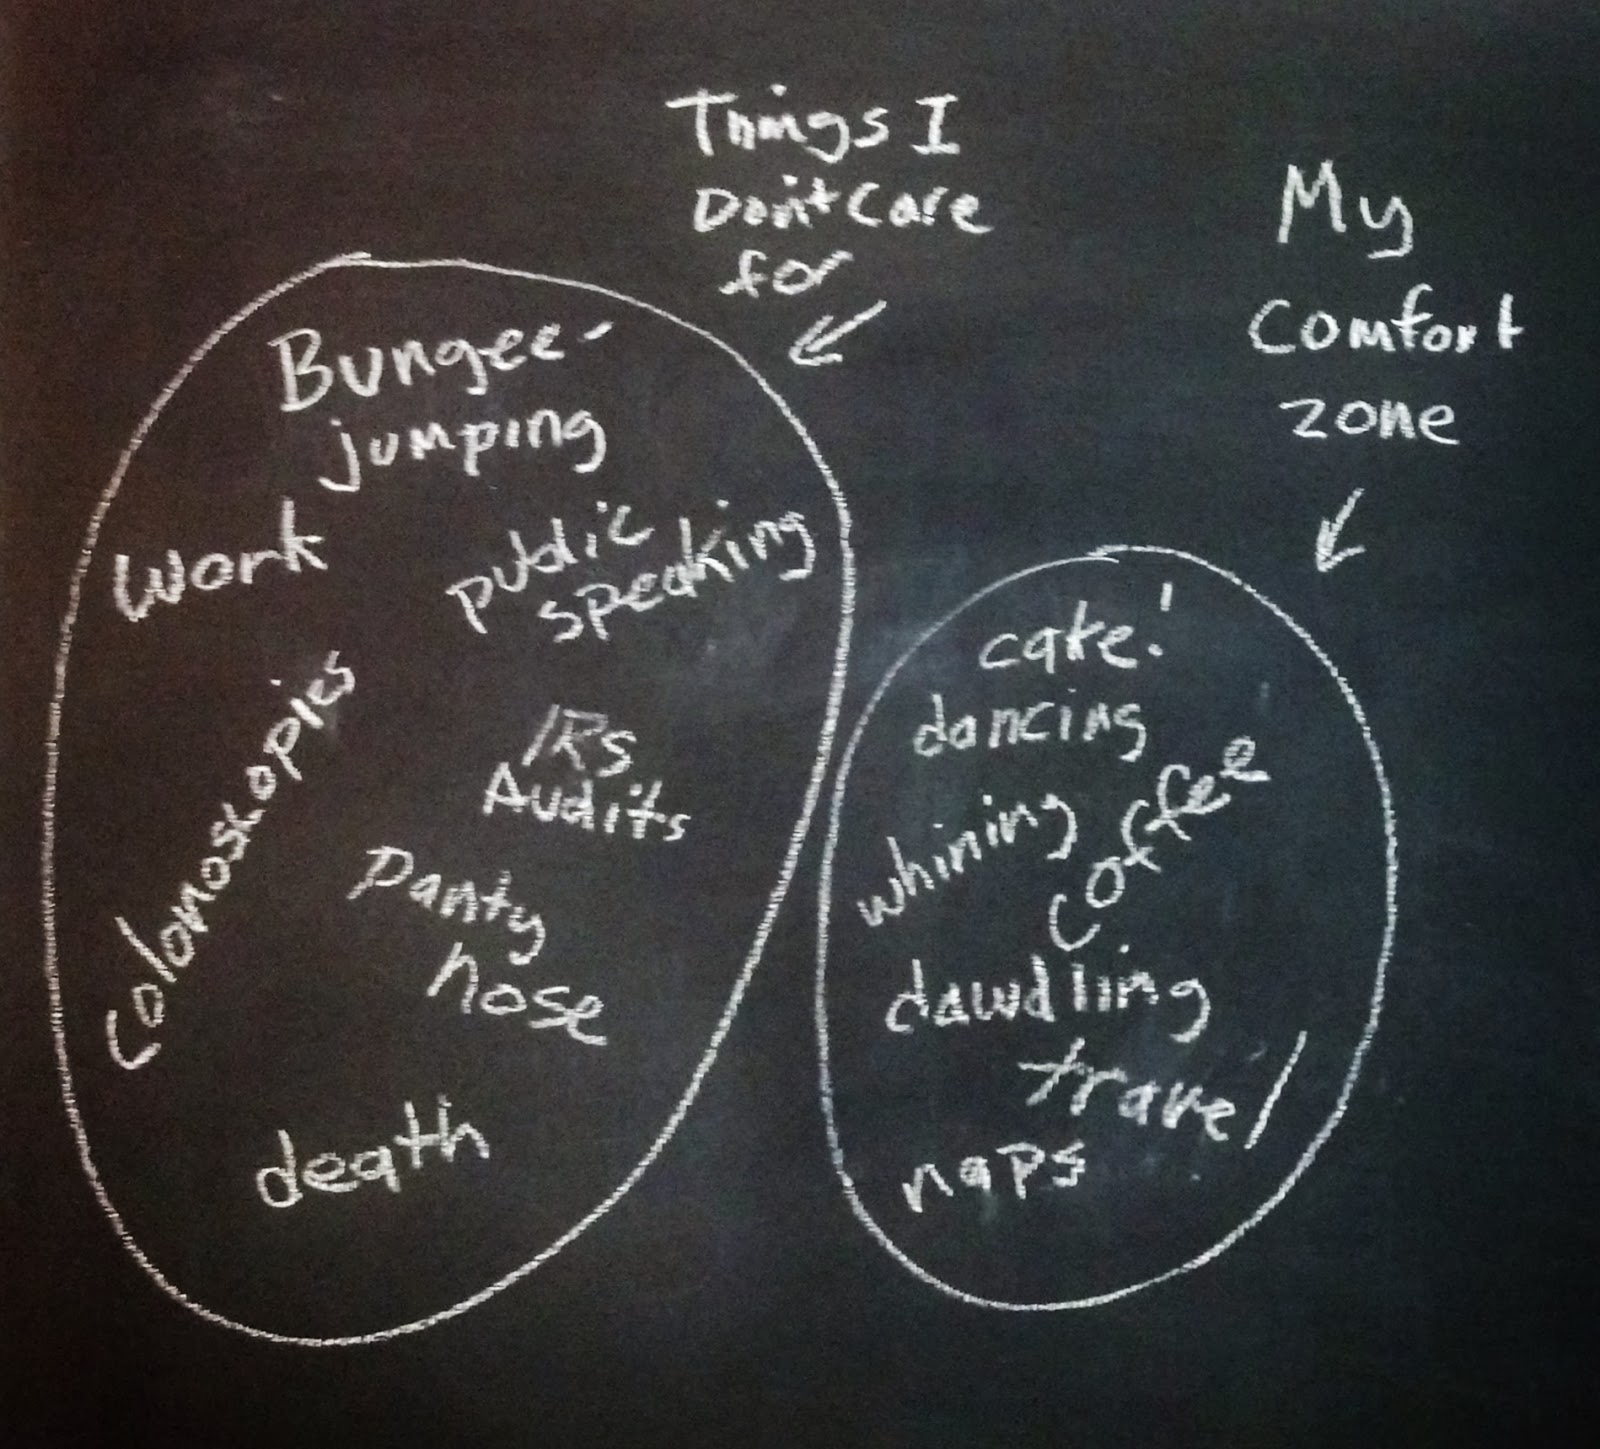 Things I
Don't Care
for
Bungee-
jumping
work
public
speaking
colonoskopies
IRS
Audits
panty
hose
death
My
comfort
zone
cake!
dancing
whining
coffee
dawdling
travel
naps